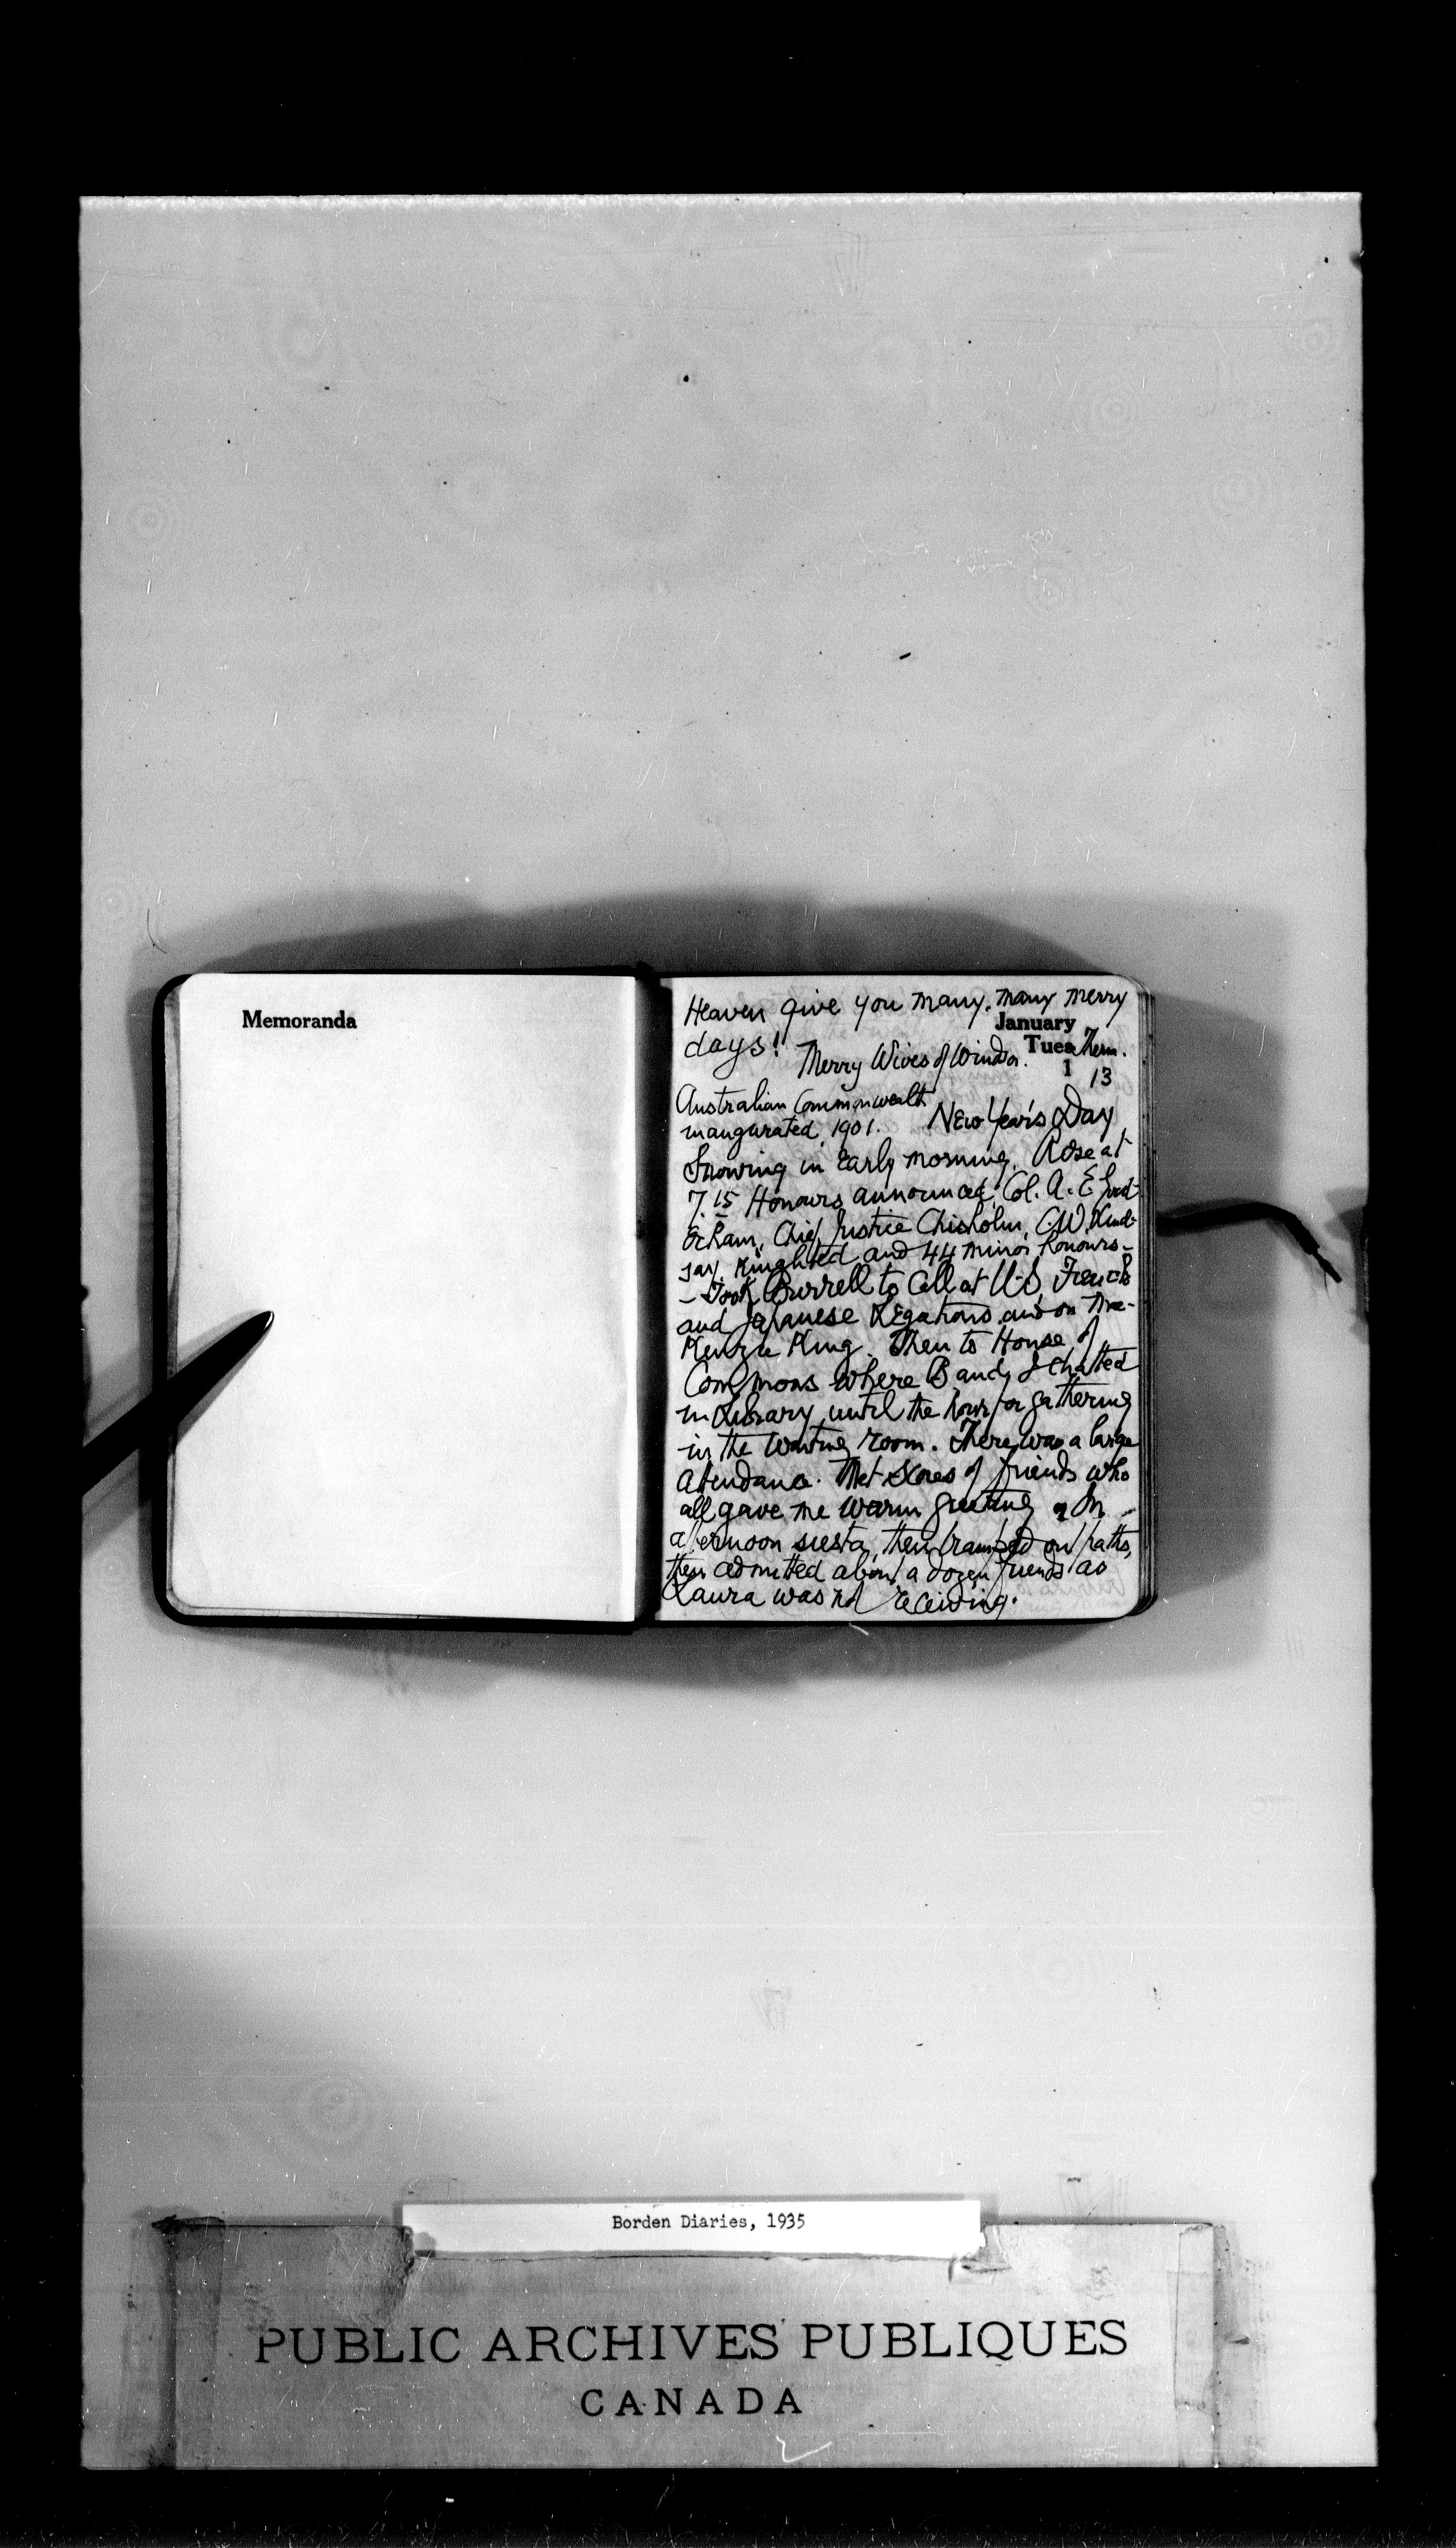 Memoranda
Heaven give you many, many merry
January
days!
Tues Therm.
Merry Wives of Windsor.
1 13
Australian Commonwealth
inaugurated, 1901. New Year's Day
Snowing in early morning. Rose at
7.15 Honours announced, Col. A. E. Good-
erham, Chief Justice Chisholm, C.W. Lind-
say, Knighted and 44 minor honours -
- Took Burrell to call at U.S, French
and Japanese Legations and on Mac-
Kenzie King. Then to House of
Commons where B and I chatted
in Library until the hour for gathering
in the waiting room. There was a large
attendance. Met scores of friends who
all gave me warm greeting. In
afternoon siesta, then tramped on paths,
then admitted about a dozen friends as
Laura was not receiving.
Borden Diaries, 1935
PUBLIC ARCHIVES PUBLIQUES
CANADA